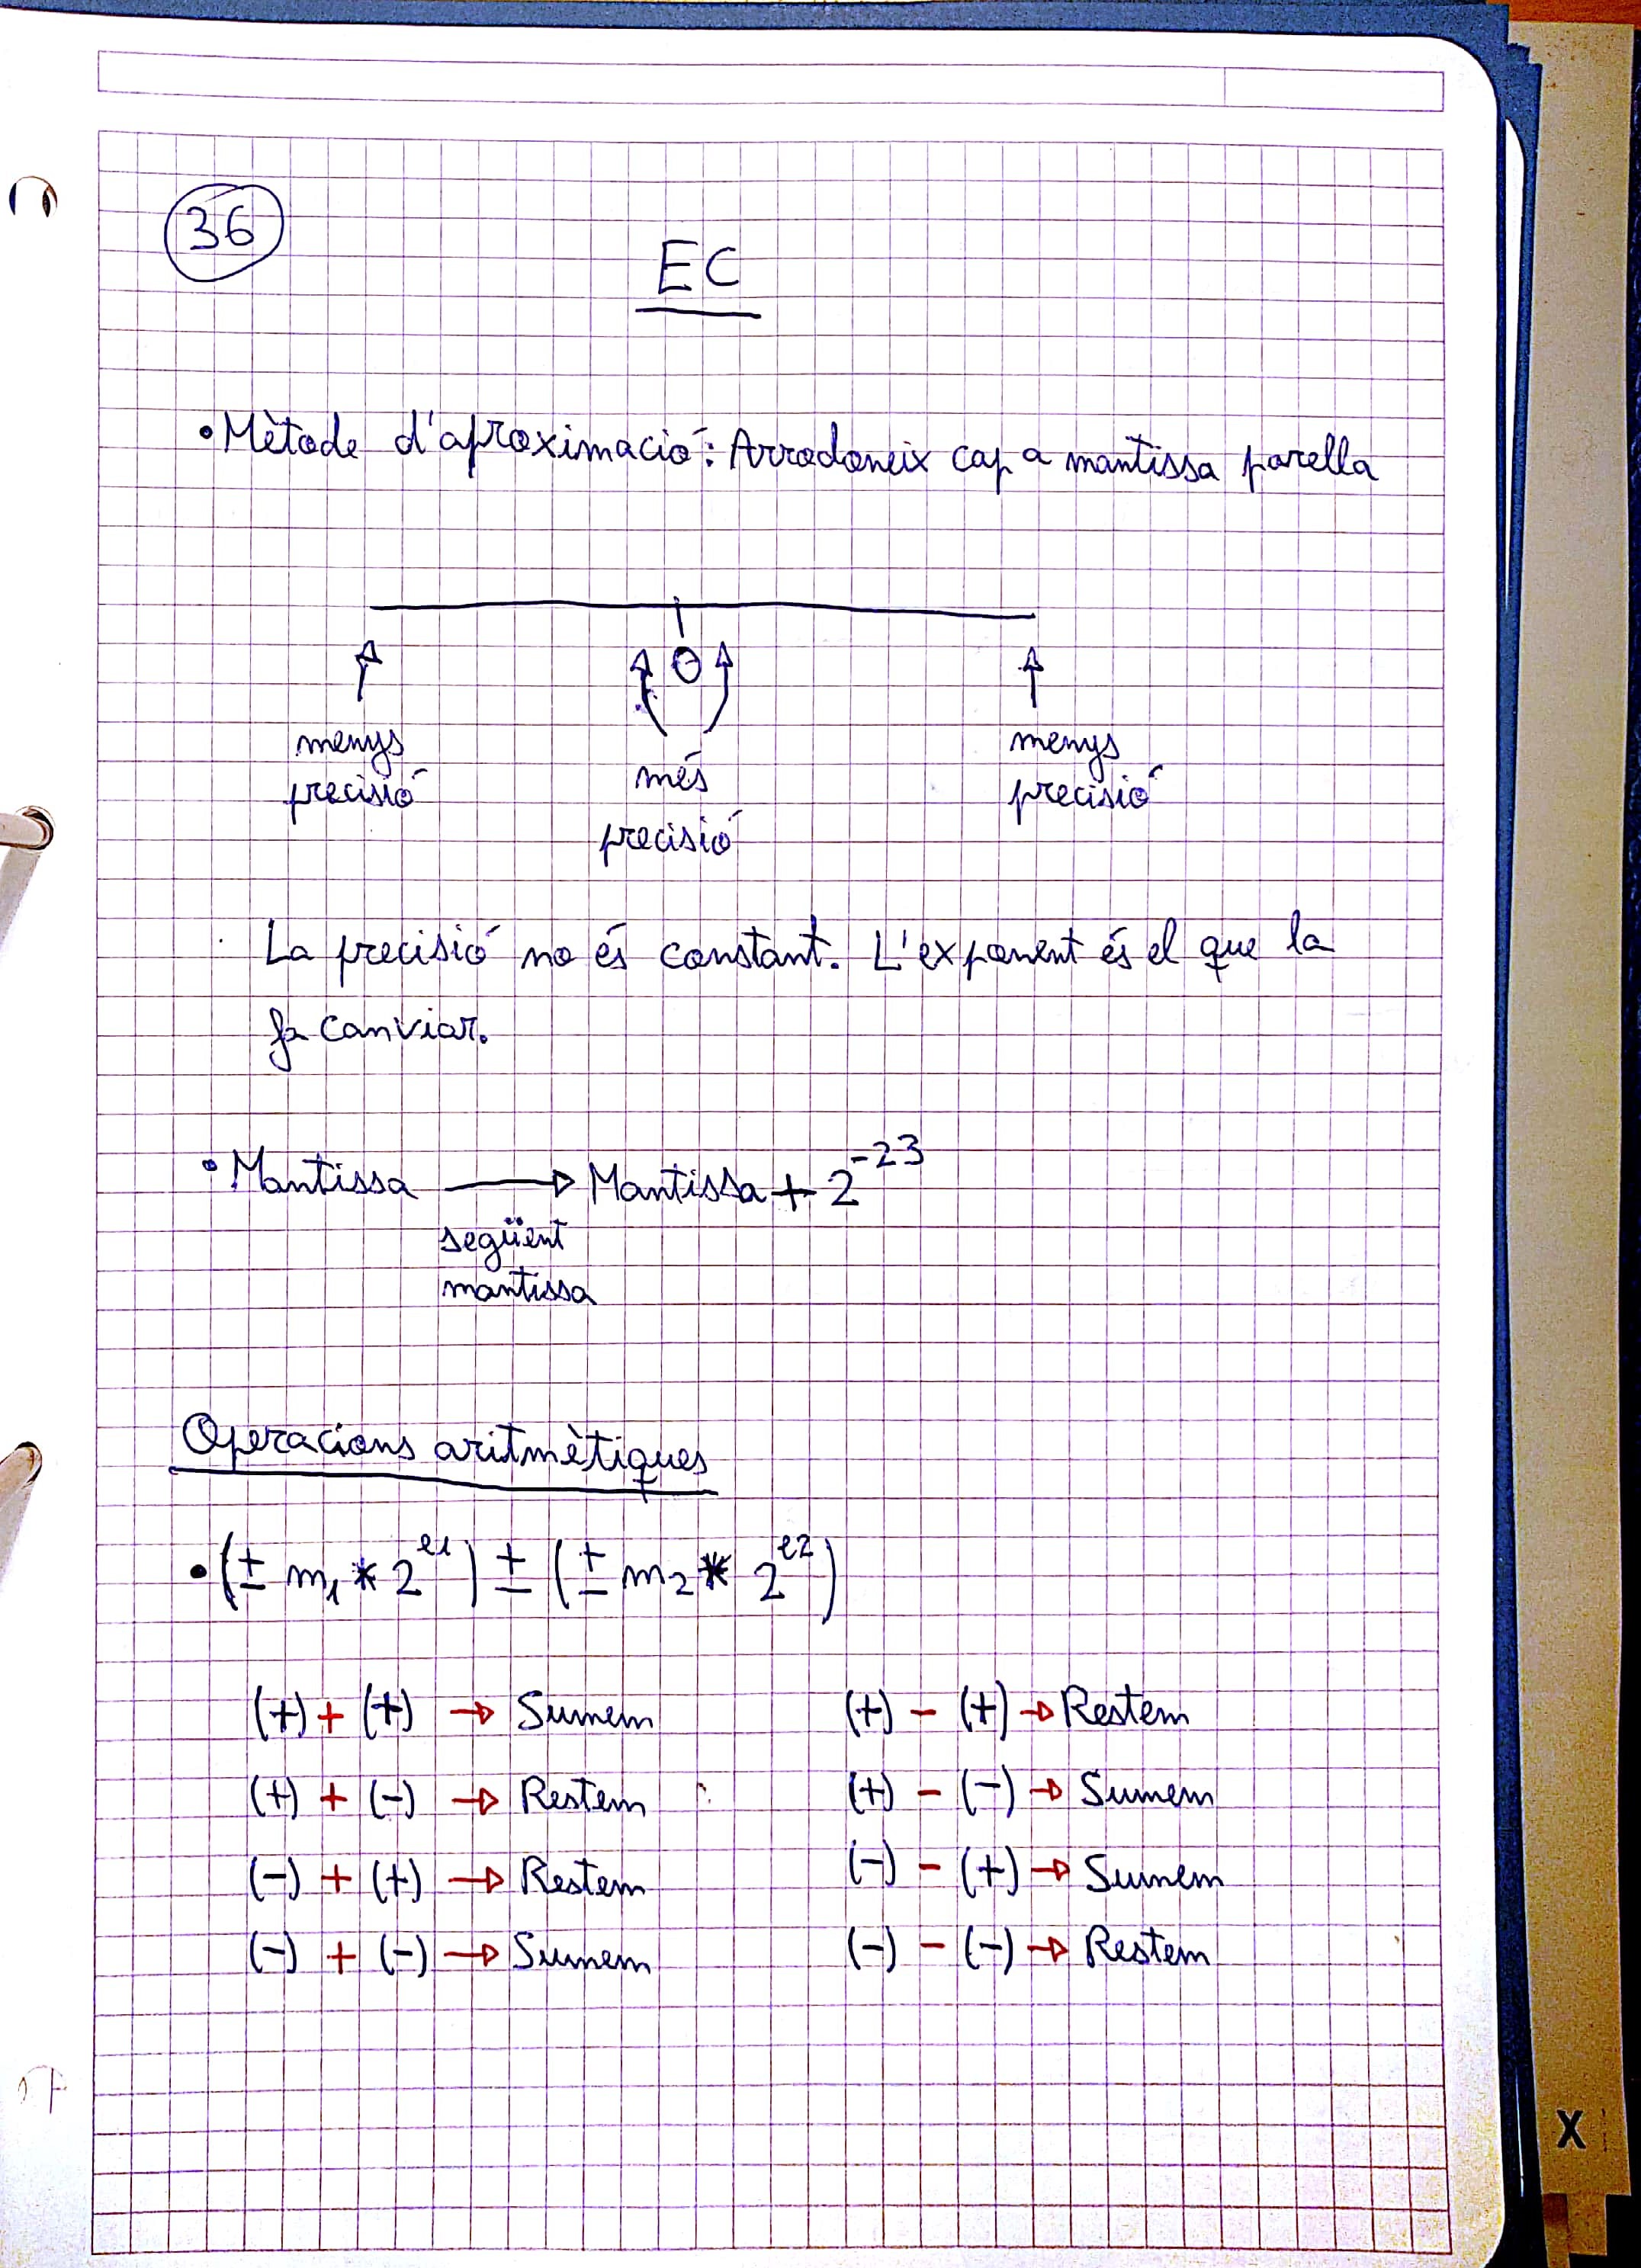 36
EC
• Mètode d'aproximació: Arrodoneix cap a mantissa parella
0
menys més menys
precisió precisió precisió
La precisió no és constant. L'exponent és el que la
fa canviar.
• Mantissa → Mantissa + 2^-23
següent
mantissa
Operacions aritmètiques
• (± m₁ * 2^e1) ± (± m₂ * 2^e2)
(+) + (+) → Sumem (+) - (+) → Restem
(+) + (-) → Restem (+) - (-) → Sumem
(-) + (+) → Restem (-) - (+) → Sumem
(-) + (-) → Sumem (-) - (-) → Restem
X